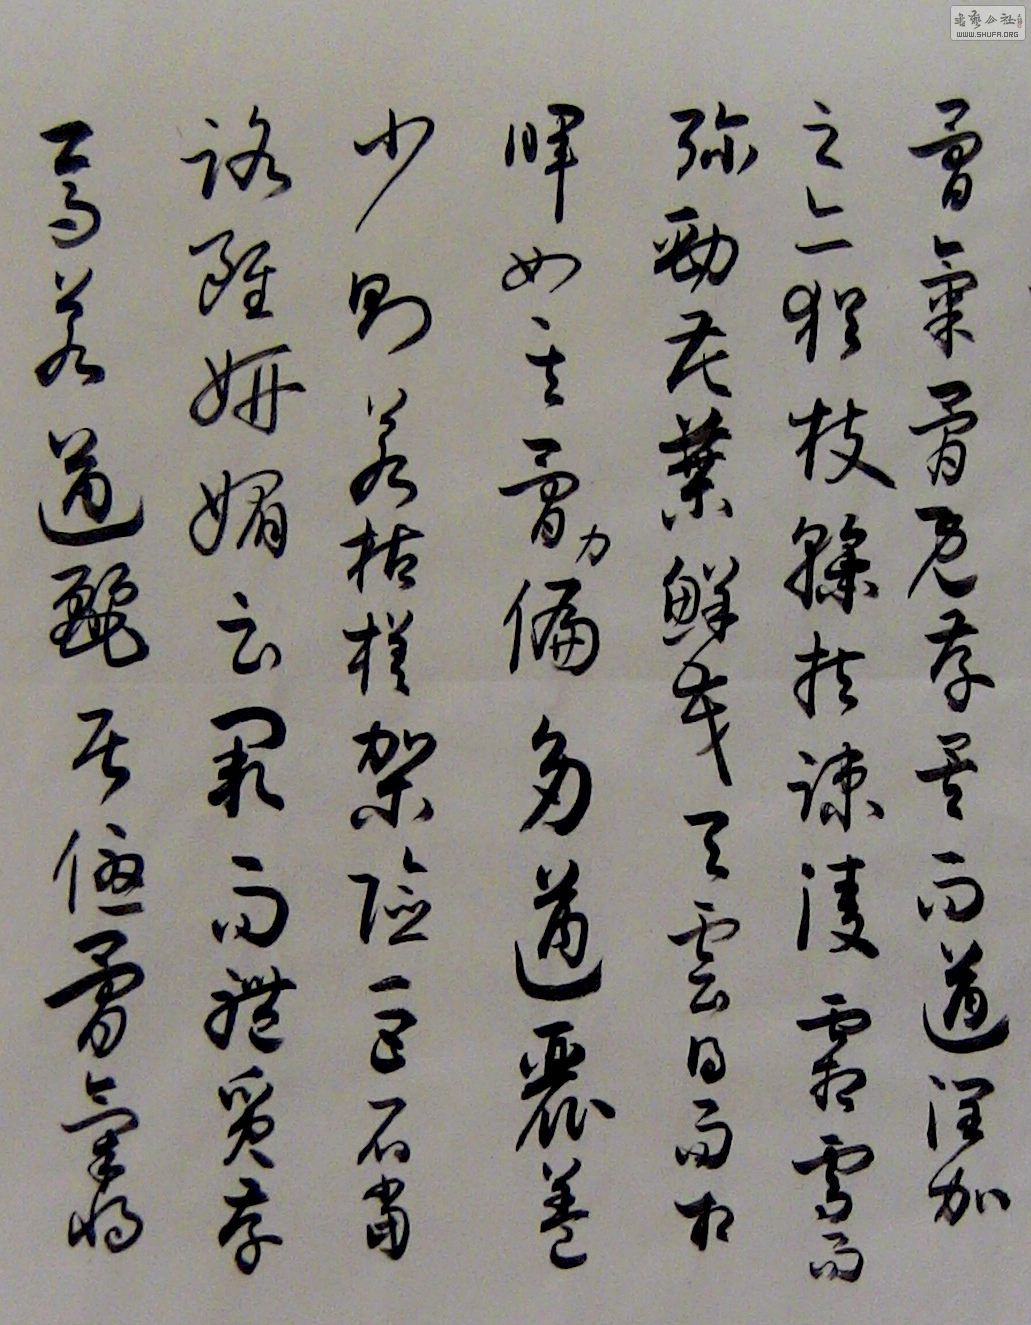 骨氣骨既存矣而遒润加
之亦猶枝幹扶疎凌霜雪而
弥勁花葉鮮茂與雲日而相
暉如其骨力偏多遒麗蓋
少則若枯槎架險巨石當
路雖妍媚云闕而體質存
焉若遒麗居優骨氣將
WWW.SHUFA.ORG